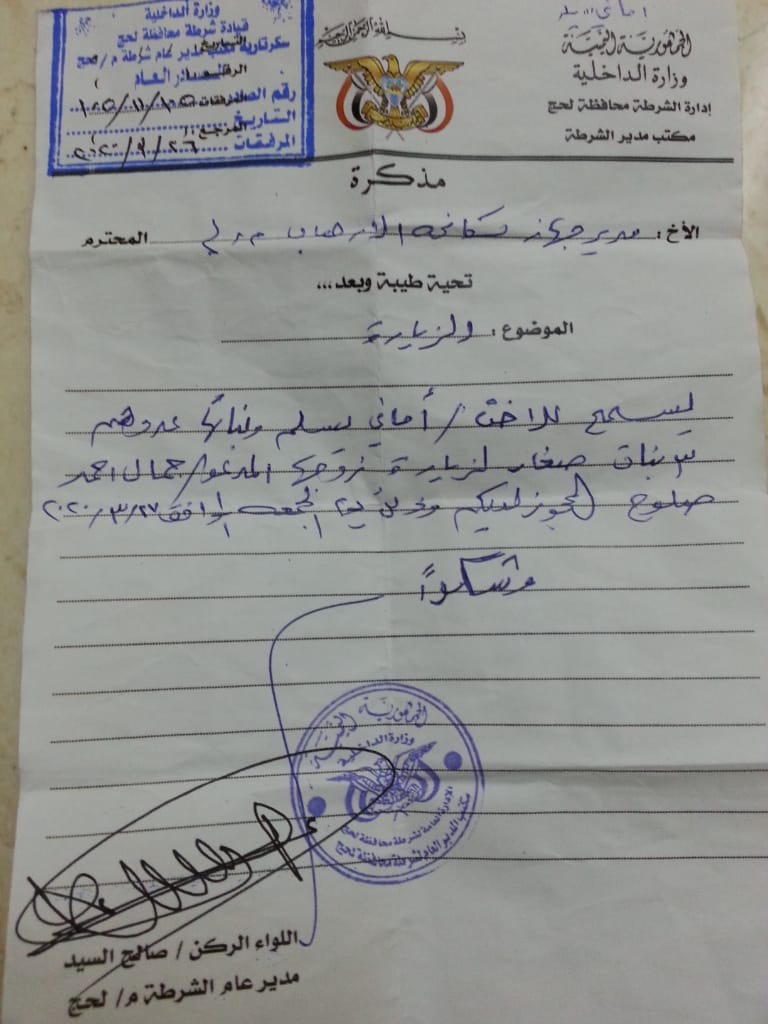 بسم الله الرحمن الرحيم
الجمهورية اليمنية
وزارة الداخلية
إدارة الشرطة محافظة لحج
مكتب مدير الشرطة
وزارة الداخلية
قيادة شرطة محافظة لحج
سكرتارية مكتب مدير عام شرطة م/ لحج
صادر العام
رقم
التاريخ
المرفقات
مذكرة
الأخ: مدير جهاز مكافحة الارهاب م لحج المحترم
تحية طيبة وبعد...
الموضوع: الزيارة
يسمح للاخت/ أماني يسلم وبناتها عددهم
٣ بنات صغار لزيارة زوجها المدعو/ جمال احمد
المحجوز لديكم وذلك يوم الجمعه الموافق ٢٠٢٠/٣/٢٧
وشكراً
الجمهورية اليمنية
وزارة الداخلية
الادارة العامة لشرطة محافظة لحج
مكتب المدير العام لشرطة محافظة لحج
اللواء الركن / صالح السيد
مدير عام الشرطة م/ لحج